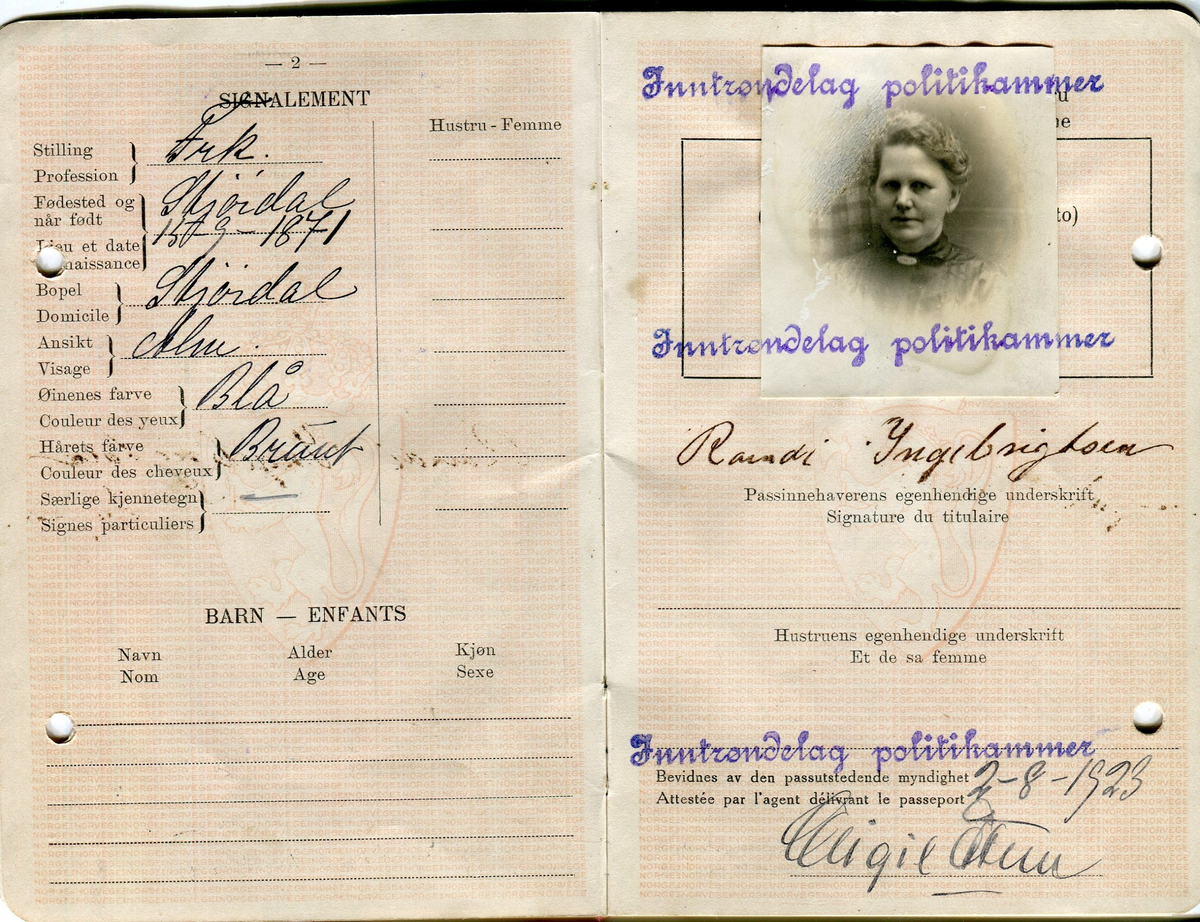 — 2 —
SIGNALEMENT
Hustru - Femme
Stilling
Profession
Frk.
Fødested og
når født
Lieu et date
naissance
Stjørdal
15-9-1871
Bopel
Domicile
Stjørdal
Ansikt
Visage
Alm.
Øinenes farve
Couleur des yeux
Blå
Hårets farve
Couleur des cheveux
Brunt
Særlige kjennetegn
Signes particuliers
—
BARN — ENFANTS
Navn Alder Kjøn
Nom Age Sexe
Inntrøndelag politikammer
to)
Inntrøndelag politikammer
Randi Ingebrigtsen
Passinnehaverens egenhendige underskrift
Signature du titulaire
Hustruens egenhendige underskrift
Et de sa femme
Inntrøndelag politikammer
Bevidnes av den passutstedende myndighet
Attestée par l'agent délivrant le passeport
2-8-1923